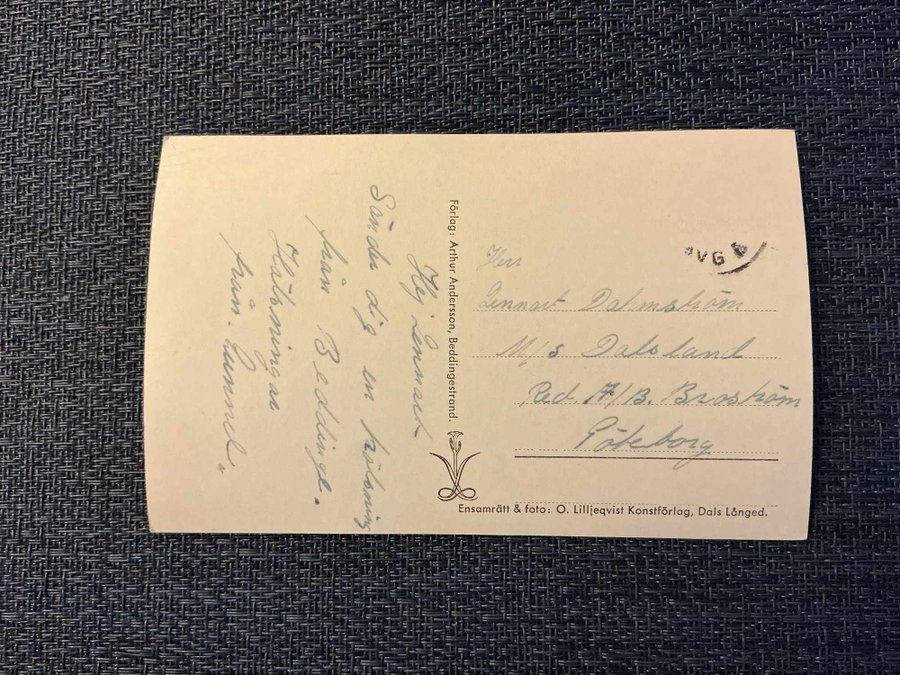 Hej Lennart
Sänder dig en hälsning
från Beddinge.
Hälsningar
från
Förlag: Arthur Andersson, Beddingestrand.
Herr
Lennart Dalmström
M/s Dalsland
Red. A/B. Broström
Göteborg
Ensamrätt & foto: O. Lilljeqvist Konstförlag, Dals Långed.